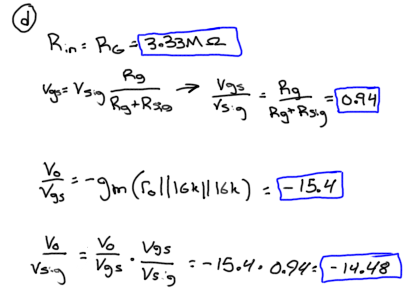 d
Rin = RG = 3.33MΩ
Vgs = Vsig Rg / Rg+Rsig → Vgs / Vsig = Rg / Rg+Rsig = 0.94
Vo / Vgs = -gm (ro||16k||16k) = -15.4
Vo / Vsig = Vo / Vgs · Vgs / Vsig = -15.4 · 0.94 = -14.48